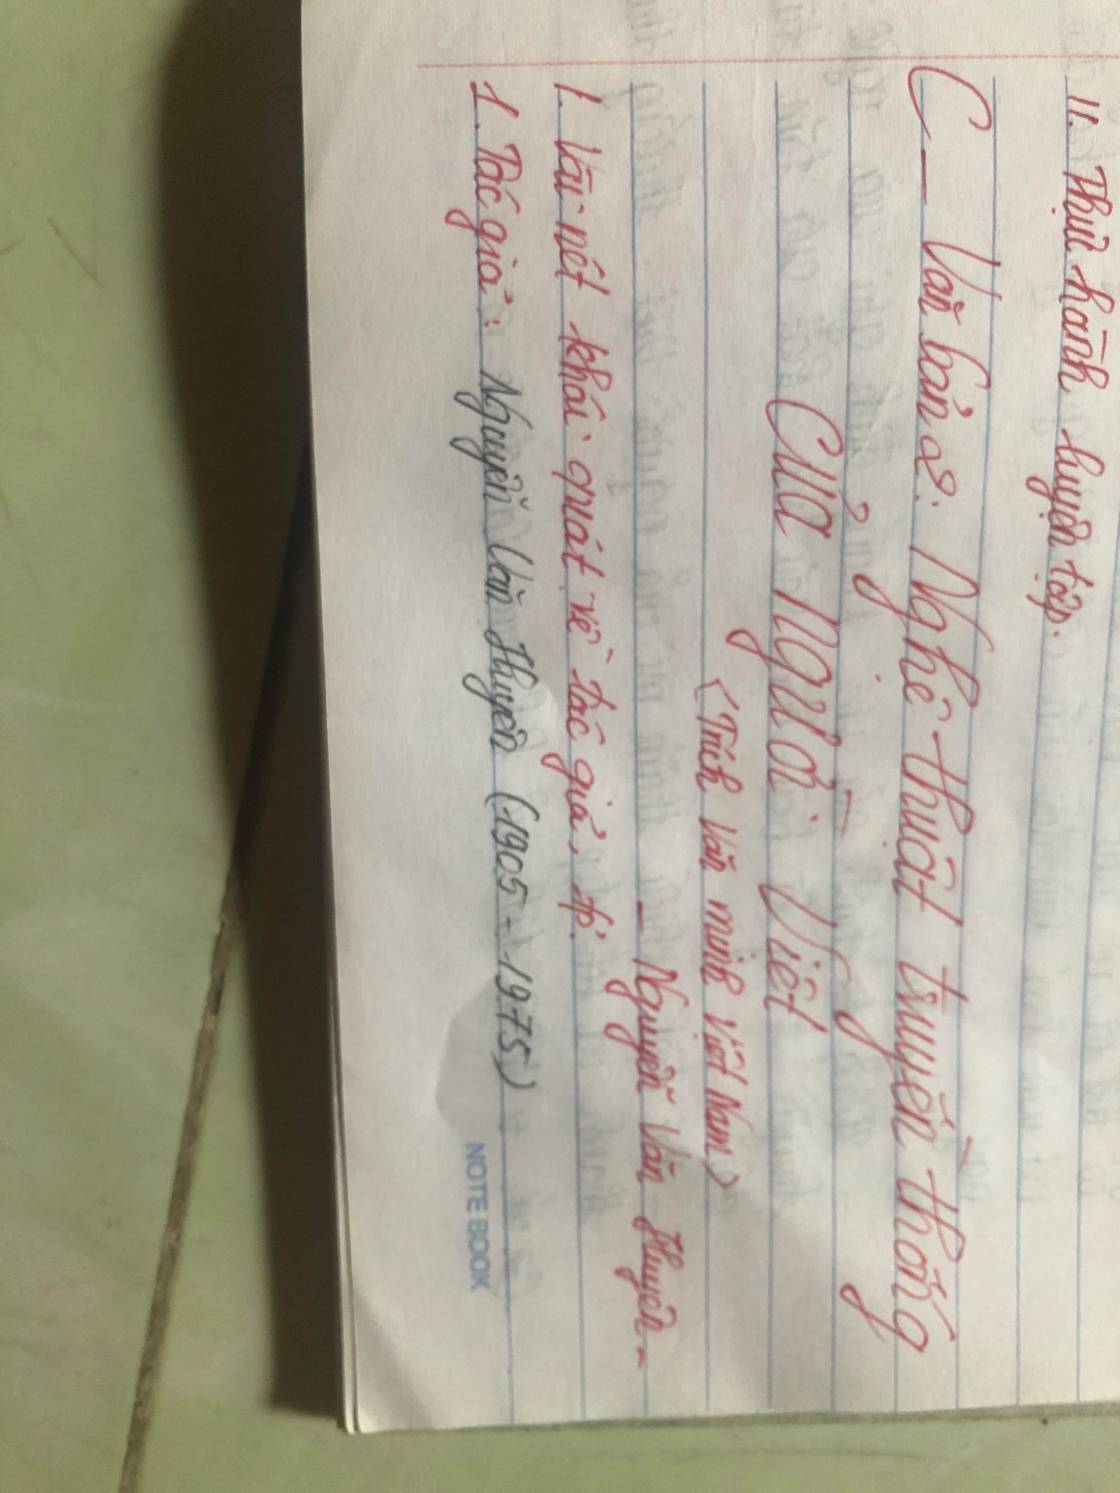 II. Thực hành luyện tập.
C _ Văn bản 2: Nghệ thuật truyền thống
của người Việt
(Trích văn minh Việt Nam)
_ Nguyễn Văn Huyên _
I. Vài nét khái quát về tác giả, tp.
1. Tác giả: Nguyễn Văn Huyên (1905 - 1975)
NOTE BOOK